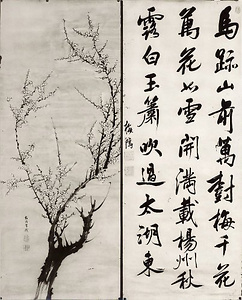 馬跡山前萬樹梅千花
萬花如雪開滿載楊州秋
露白玉簫吹過太湖東